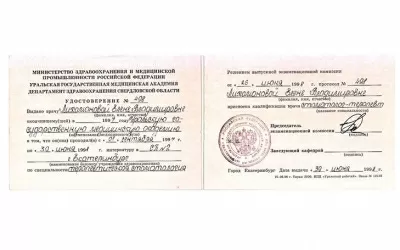 МИНИСТЕРСТВО ЗДРАВООХРАНЕНИЯ И МЕДИЦИНСКОЙ
ПРОМЫШЛЕННОСТИ РОССИЙСКОЙ ФЕДЕРАЦИИ
УРАЛЬСКАЯ ГОСУДАРСТВЕННАЯ МЕДИЦИНСКАЯ АКАДЕМИЯ
ДЕПАРТАМЕНТ ЗДРАВООХРАНЕНИЯ СВЕРДЛОВСКОЙ ОБЛАСТИ
УДОСТОВЕРЕНИЕ № 408
Выдано врачу Елене Владимировне
(фамилия, имя, отчество)
в 1997 Уральскую го-
сударственную медицинскую академию
в том, что он(она) проходил(а) с 01 сентября
по 30 июня 1998 г. интернатуру в
г. Екатеринбург
по специальности терапевтическая стоматология
Решением выпускной экзаменационной комиссии
от 26 июня 1998 г. протокол № 408
Елене Владимировне
(фамилия, имя, отчество)
присвоена квалификация врача стоматолога-терапевта
Председатель
экзаменационной комиссии
Заведующий кафедрой
Город Екатеринбург Дата выдачи 30 июня 1998 г.